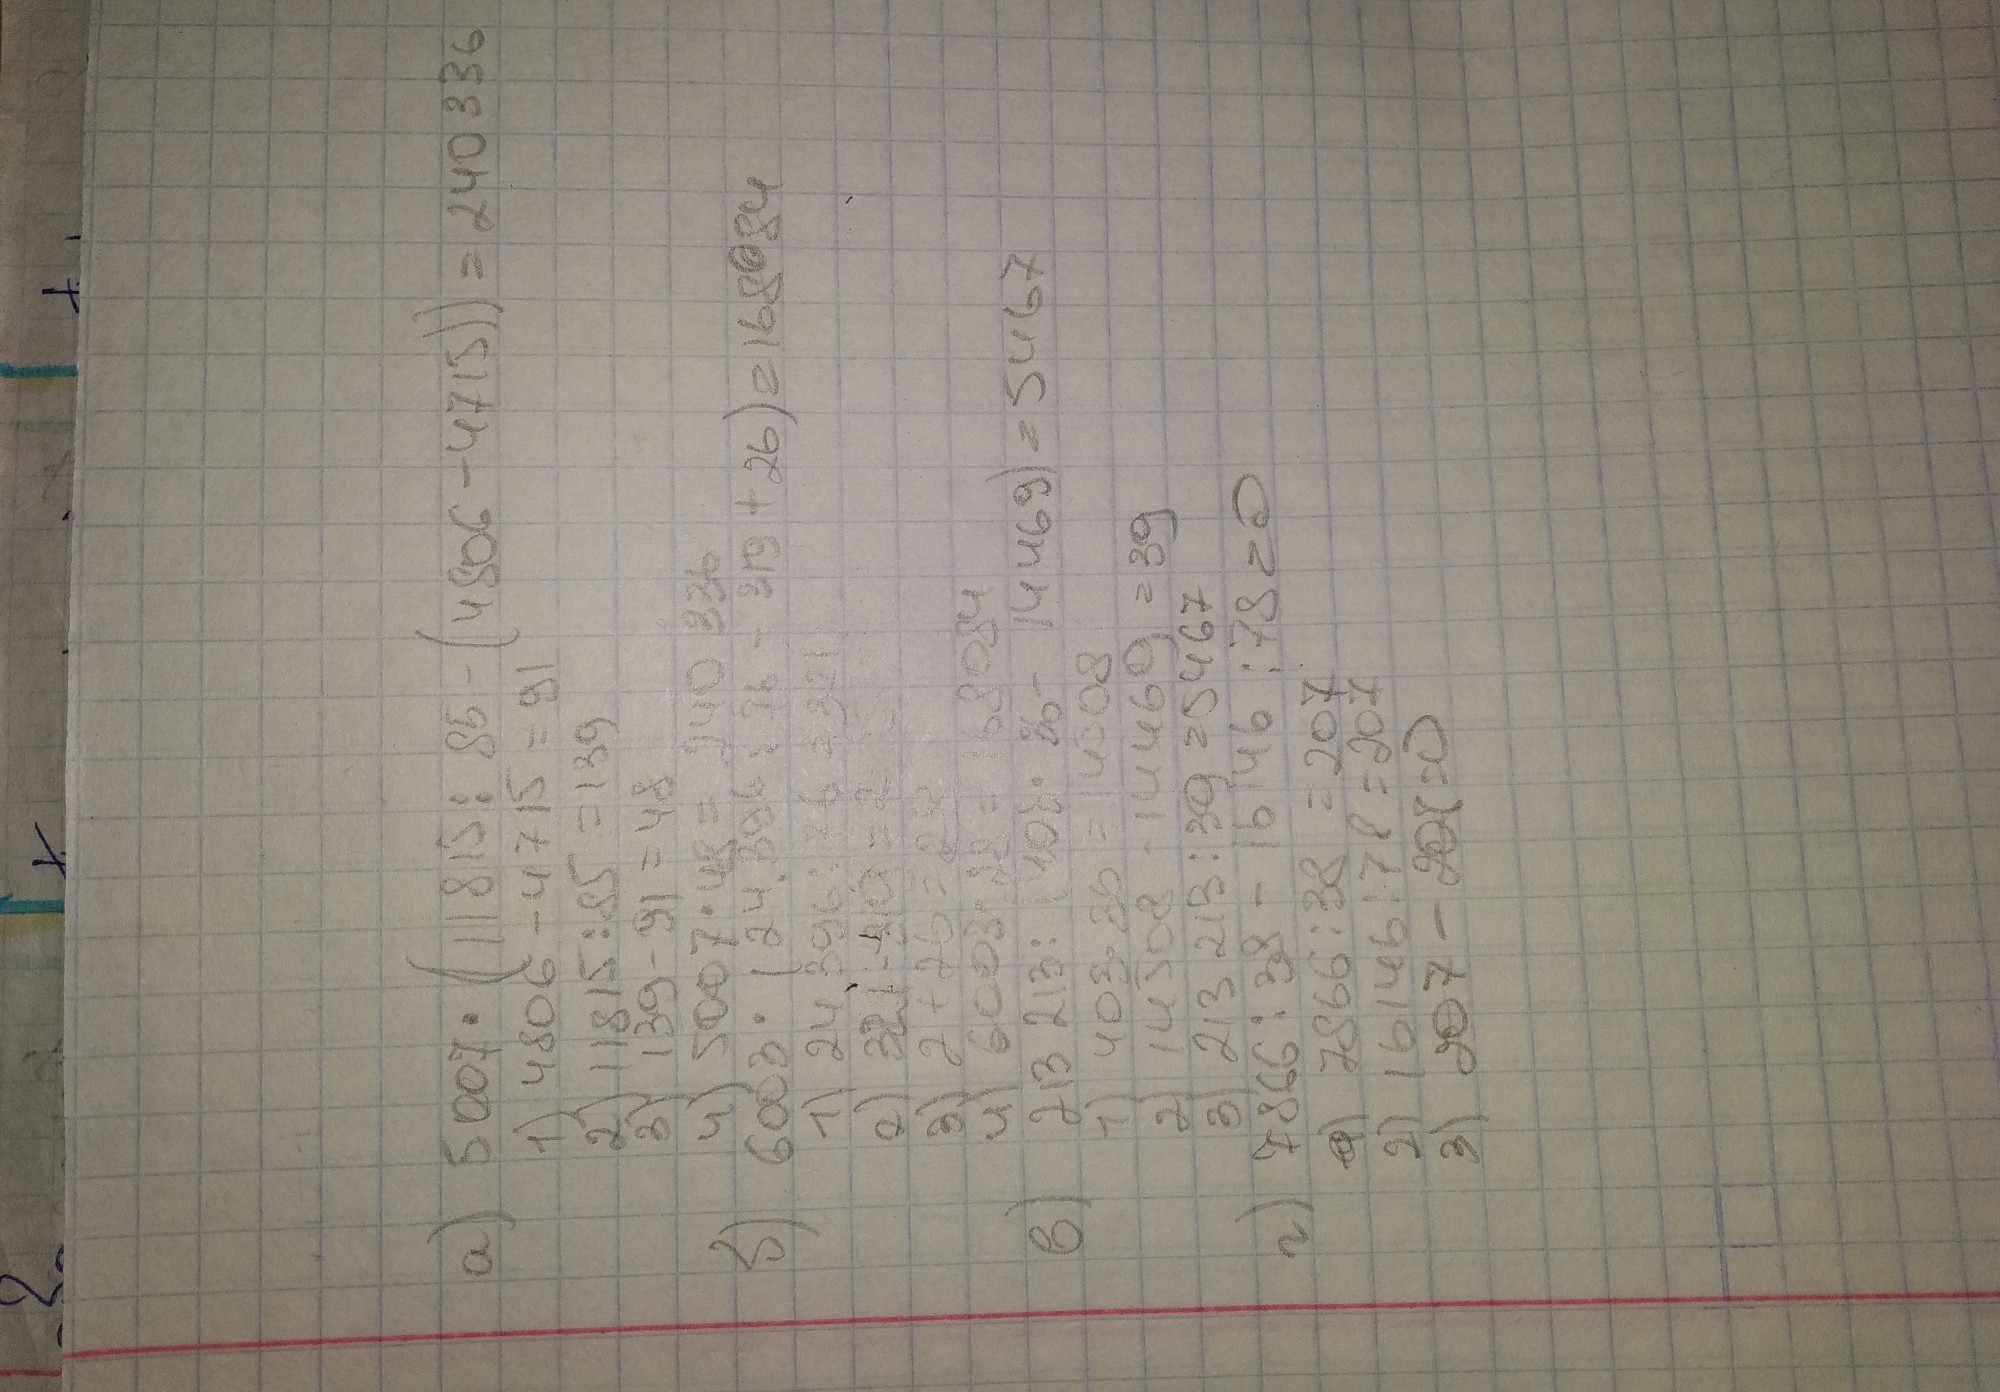 а) 5007·(11815:85-(4806-4715))=240336
1) 4806-4715=91
2) 11815:85=139
3) 139-91=48
4) 5007·48=240336
б) 6003·(24396:76-319+26)=168084
1) 24396:76=321
2) 321-319=2
3) 2+26=28
4) 6003·28=168084
в) 213213:(403·36-14469)=5467
1) 403·36=14508
2) 14508-14469)=39
3) 213213:39=5467
г) 7866:38-16146:78=0
1) 7866:38=207
2) 16146:78=207
3) 207-207=0